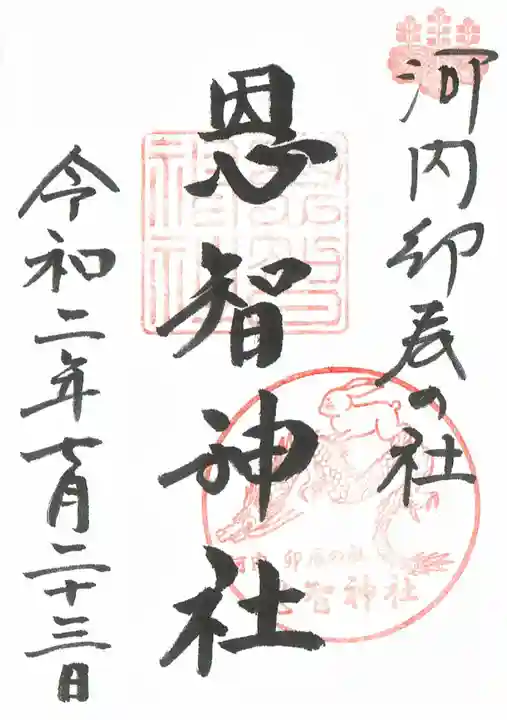 河内卯辰の社
恩智神社
令和二年七月二十三日
恩智神社
卯辰の社
智神社